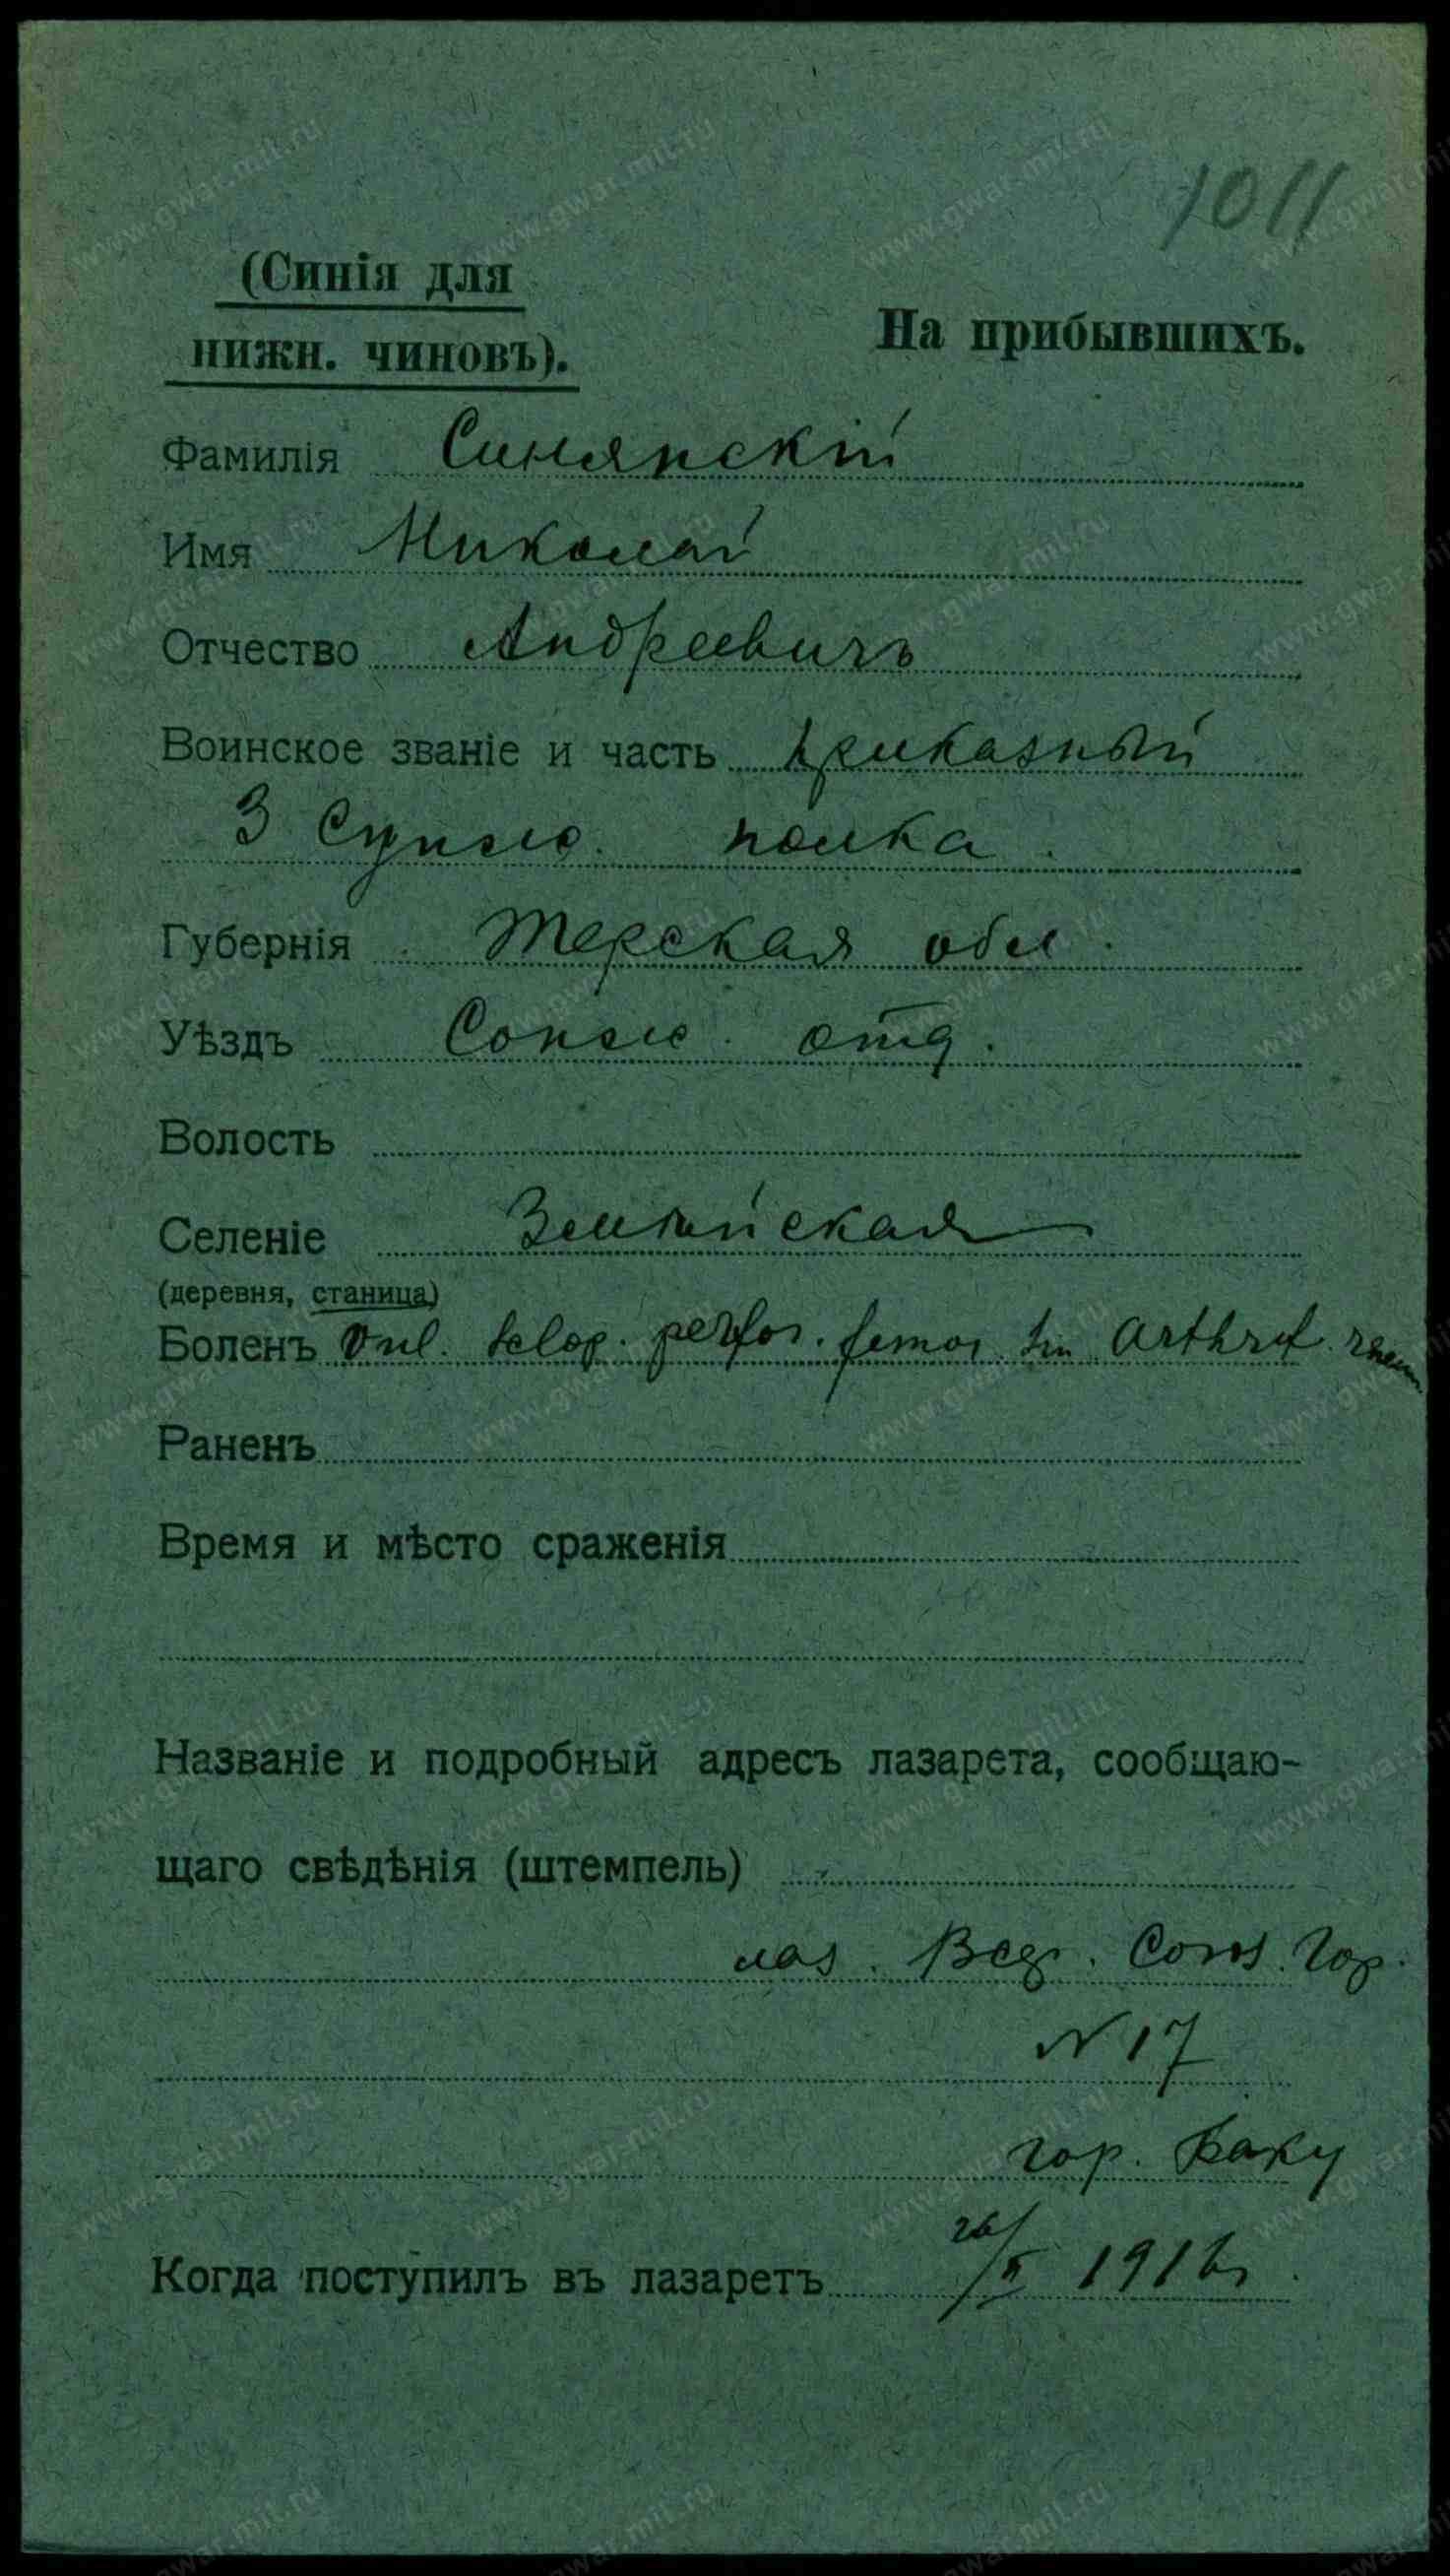 1011
(Синія для
нижн. чиновъ).
На прибывшихъ.
Фамилія Синянскій
Имя Николай
Отчество Андреевичъ
Воинское званіе и часть приказный
3 Сунж. полка.
Губернія Терская обл.
Уѣздъ Сонж. отд.
Волость
Селеніе
(деревня, станица)
Боленъ Vul. sclop. perfor. femor. sin Arthrit. rheum.
Раненъ
Время и мѣсто сраженія
Названіе и подробный адресъ лазарета, сообщаю-
щаго свѣдѣнія (штемпель)
лаз. Всер. Союз. Гор.
N 17
гор. Баку
Когда поступилъ въ лазаретъ 1916 г.
www.gwar.mil.ru